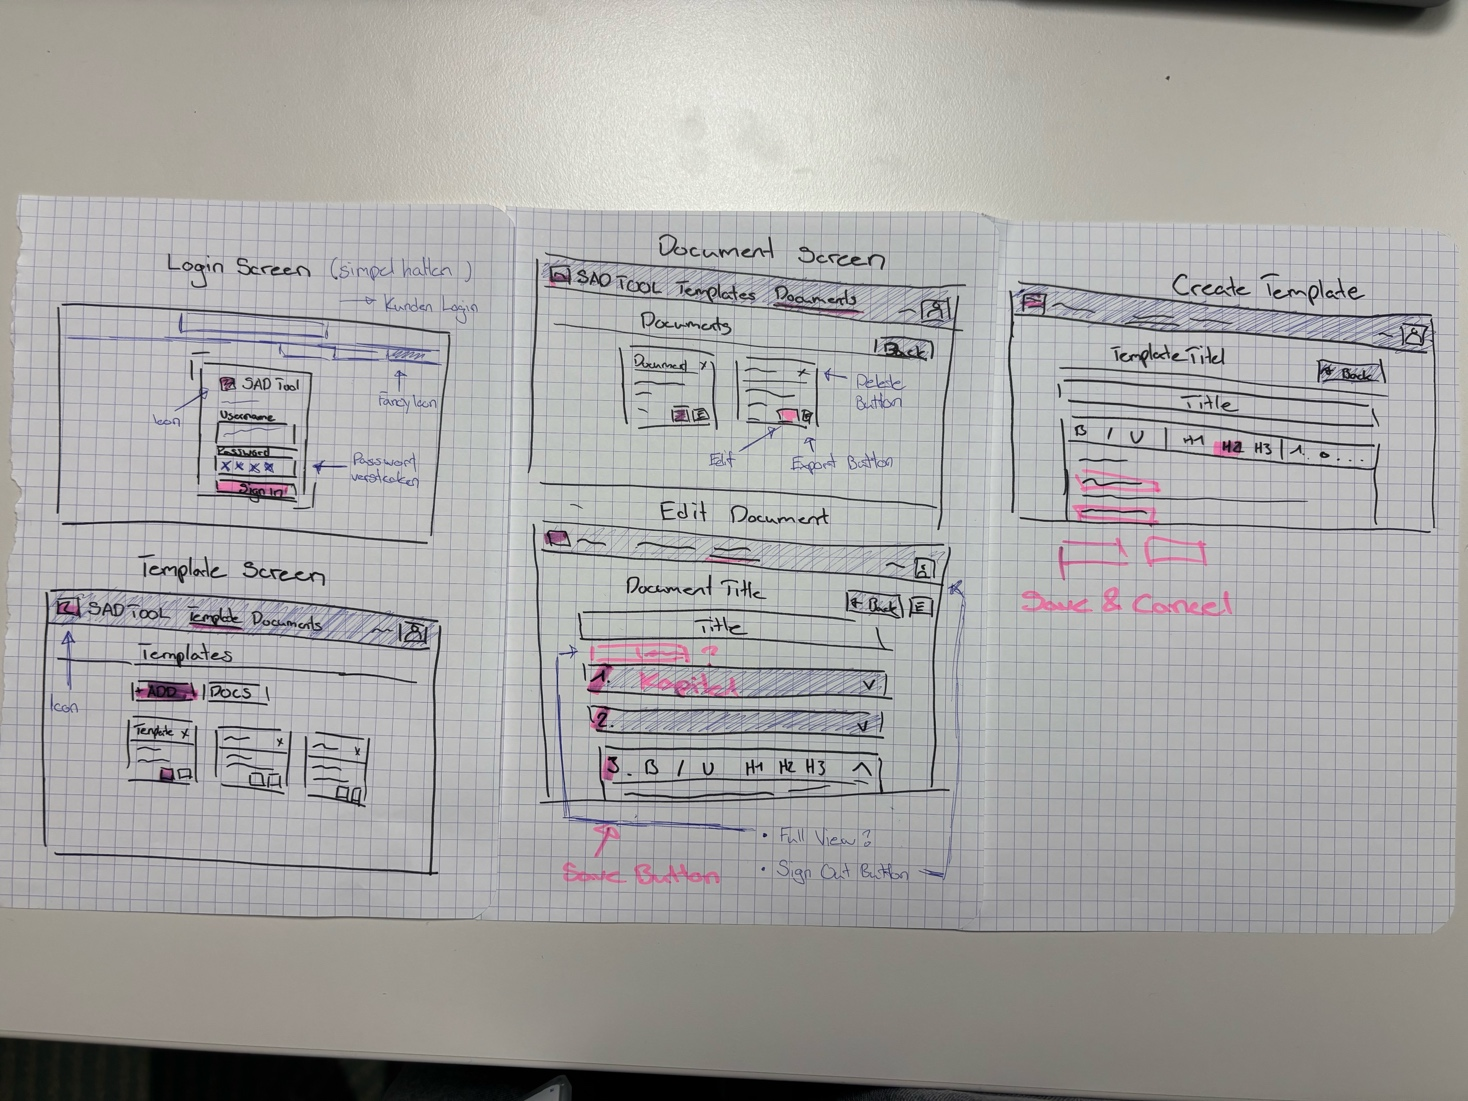 Login Screen (simpel halten)
→ Kunden Login
Fancy Icon
SAD Tool
Icon
Username
Password
x x x x
Password
verstecken
Sign In
Template Screen
SAD TOOL Template Documents
Templates
+ ADD DOCS
Icon
Template x
x
x
Document Screen
SAD TOOL Templates Documents
Documents
Back
Document x
x
Delete
Button
Edit
Export Button
Edit Document
Document Title
← Back E
Title
?
1. Kapitel v
2. v
3. B / U H1 H2 H3 ^
• Full View?
• Sign Out Button
Save Button
Create Template
Template Titel
← Back
Title
B / U | H1 H2 H3 | 1. o ...
Save & Cancel